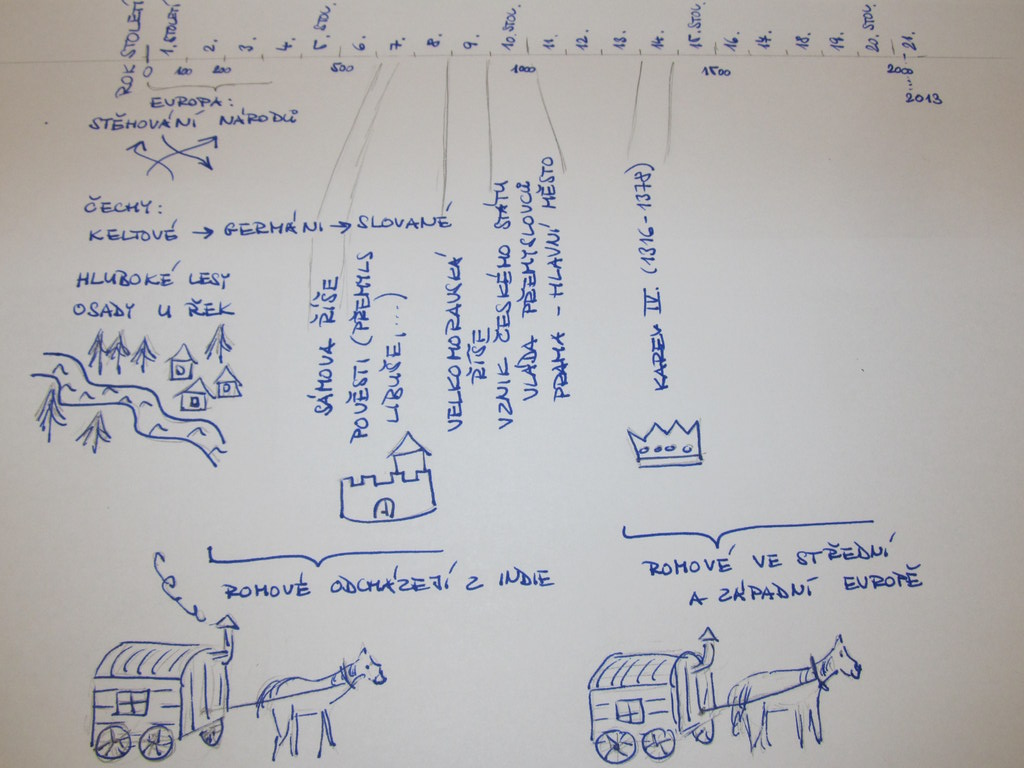 ROK STOLETÍ
1. STOLETÍ
2.
3.
4.
5. STOL.
6.
7.
8.
9.
10. STOL.
11.
12.
13.
14.
15. STOL.
16.
17.
18.
19.
20. STOL.
21.
0
100
200
500
1000
1500
2000
....
2013
EVROPA:
STĚHOVÁNÍ NÁRODŮ
ČECHY:
KELTOVÉ → GERMÁNI → SLOVANÉ
HLUBOKÉ LESY
OSADY U ŘEK
SÁMOVA ŘÍŠE
POVĚSTI (PŘEMYLS
LIBUŠE,...)
VELKOMORAVSKÁ
ŘÍŠE
VZNIK ČESKÉHO STÁTU
VLÁDA PŘEMYSLOVCŮ
PRAHA - HLAVNÍ MĚSTO
KAREL IV. (1316-1378)
ROMOVÉ ODCHÁZEJÍ Z INDIE
ROMOVÉ VE STŘEDNÍ
A ZÁPADNÍ EVROPĚ